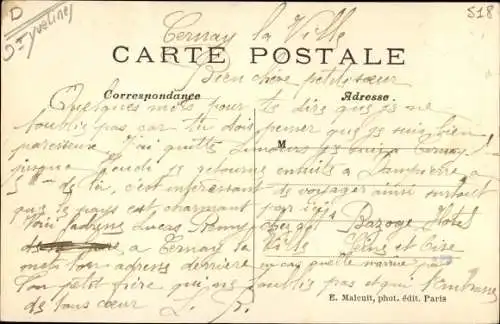 D
Yvelines
S18
Cernay la Ville
CARTE POSTALE
Bien chère petite sœur
Correspondance
Adresse.
Quelques mots pour te dire que je ne
t'oublis pas car tu dois penser que je suis bien
M
paresseuse. J'ai quitté Lundi je suis à Cernay
jusque Jeudi je retourne ensuite à Dampierre a
de toi, c'est intéressant de voyager ainsi surtout
que le pays est charmant par ici
Voici l'adresse Lucas Remy chez Bazoge Hotel
a Cernay la Ville Seine et Oise
mets ton adresse derrière en cas qu'elle n'arrive pas
Ton petit frère qui ne t'oublis pas et qui t'embrasse
de tous cœur L. R.
E. Malcuit, phot. édit. Paris